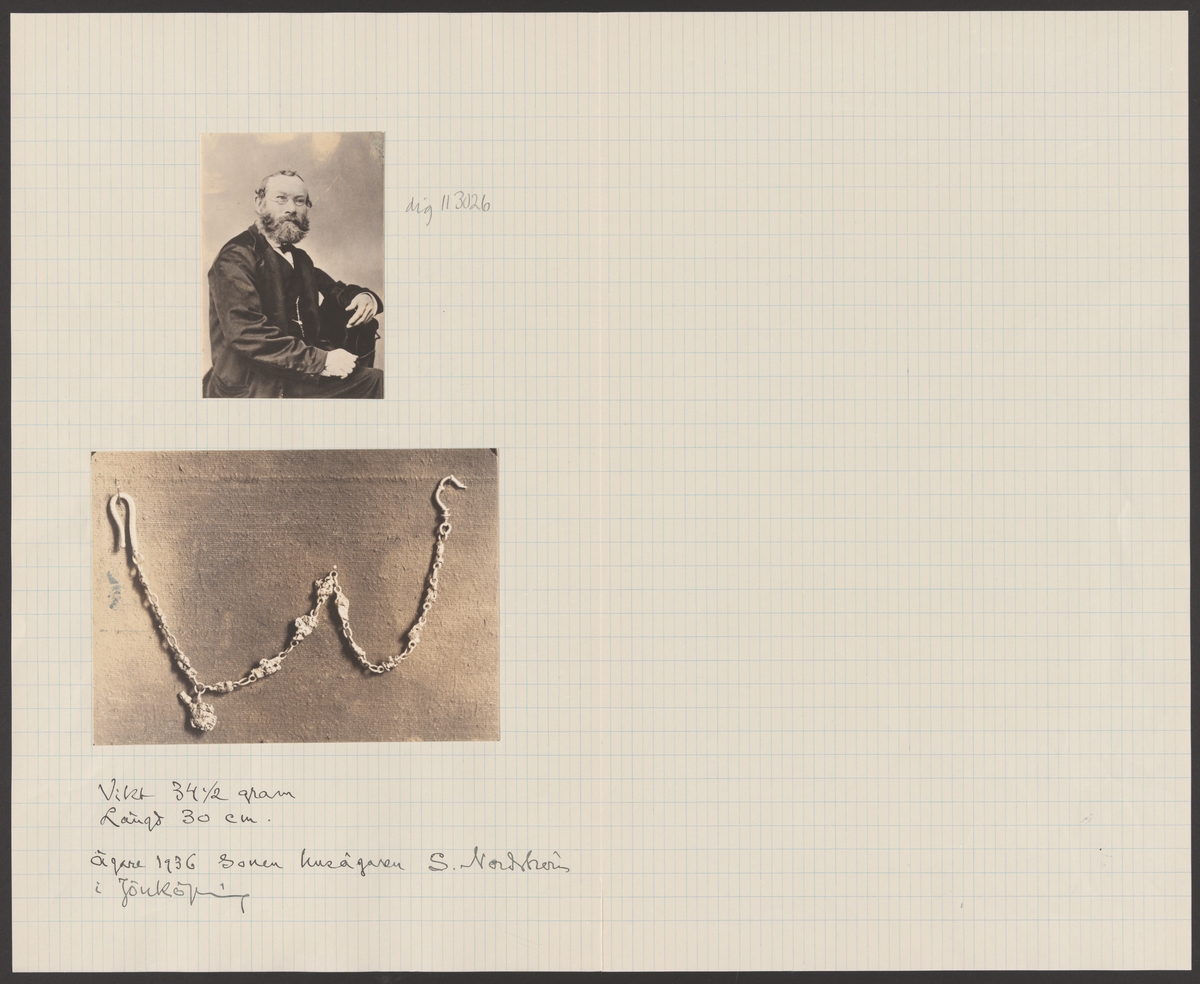 dig 113026
Vikt 34 1/2 gram
Längd 30 cm.
Ägare 1936 Sonen husägaren S. Nordström
i Jönköping